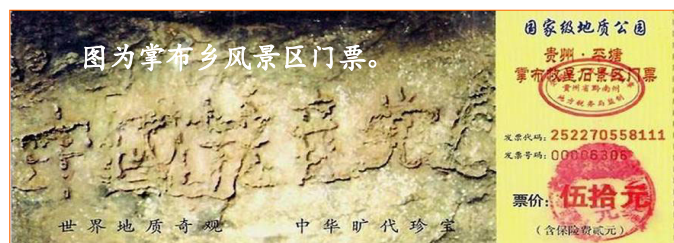 图为掌布乡风景区门票。
世界地质奇观 中华旷代珍宝
国家级地质公园
贵州·平塘
掌布救星石景区门票
贵州省黔南州
地方税务局监制
发票代码: 252270558111
发票号码: 00006306
票价: 伍拾元
(含保险费贰元)